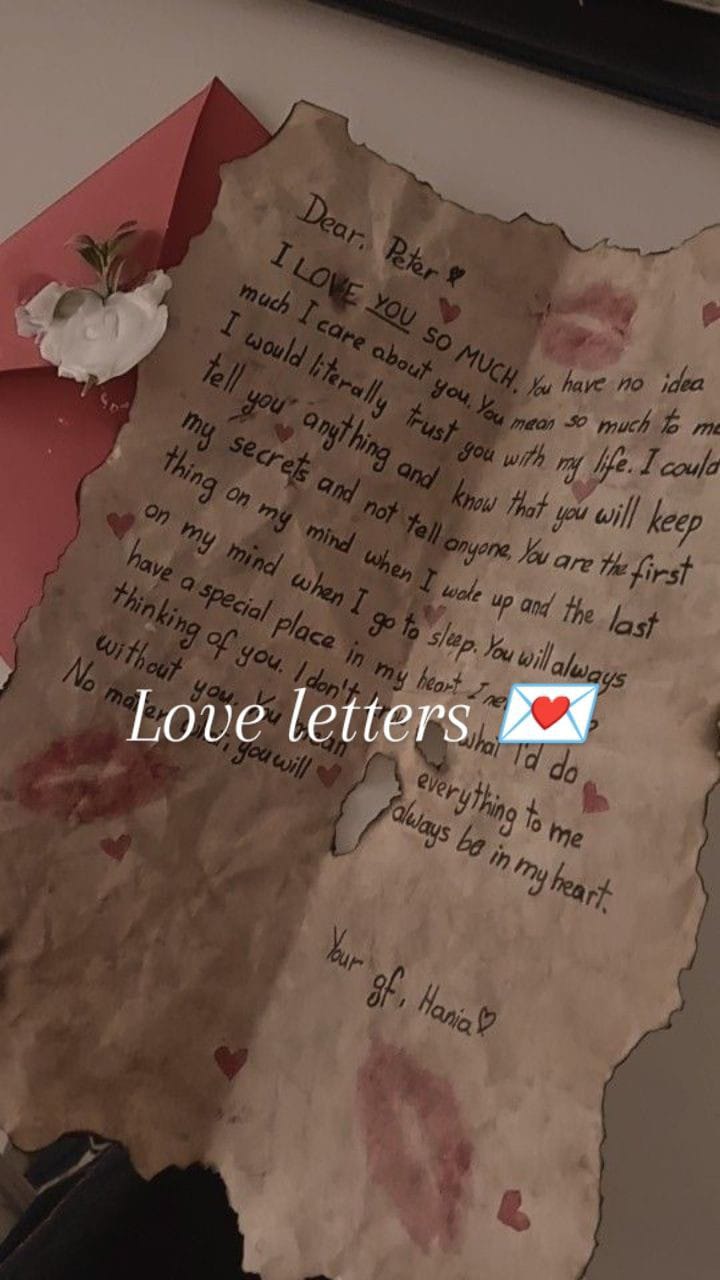 Dear, Peter ♥
I LOVE YOU SO MUCH. You have no idea
much I care about you. You mean so much to me
I would literally trust you with my life. I could
tell you anything and know that you will keep
my secrets and not tell anyone. You are the first
thing on my mind when I woke up and the last
on my mind when I go to sleep. You will always
have a special place in my heart. I
thinking of you. I don't what I'd do
without you. You mean everything to me
No matter you will always be in my heart.
Love letters 💌
Your
gf, Hania♡